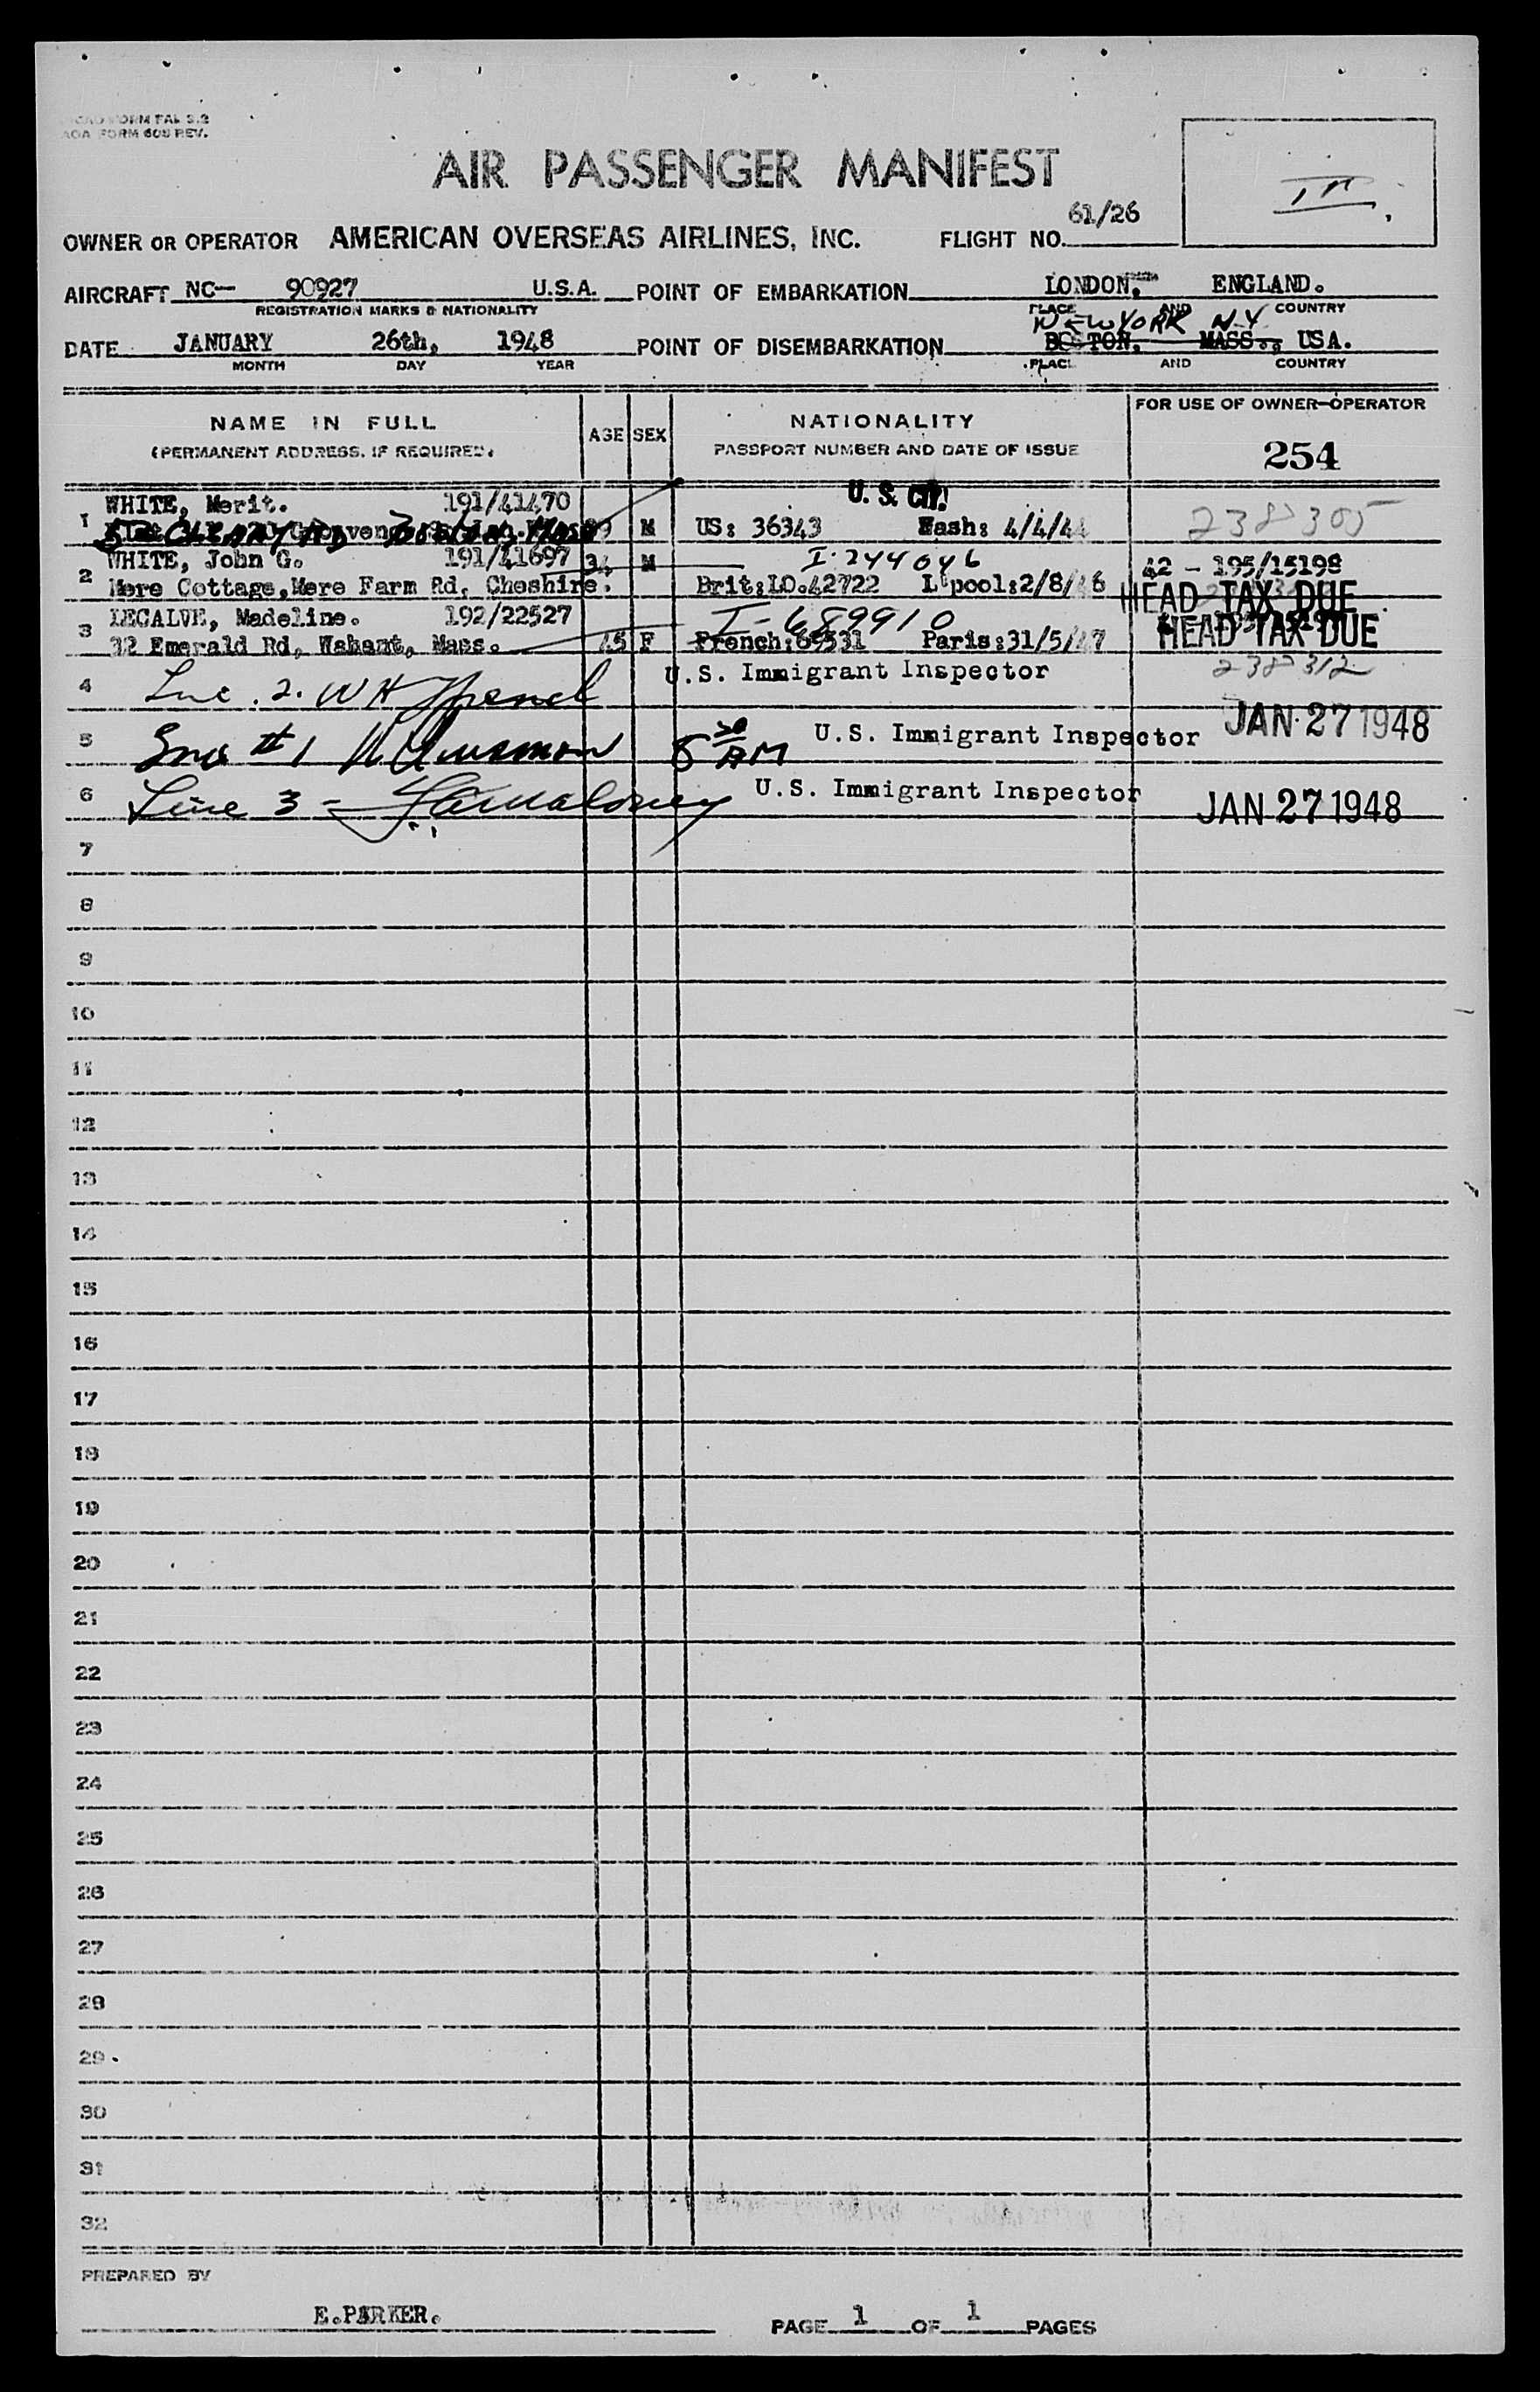 ICAO FORM FAL 3.2
AOA FORM 608 REV.
AIR PASSENGER MANIFEST
61/26
OWNER OR OPERATOR AMERICAN OVERSEAS AIRLINES, INC. FLIGHT NO.
AIRCRAFT NC— 90927 U.S.A. POINT OF EMBARKATION LONDON, ENGLAND.
REGISTRATION MARKS & NATIONALITY PLACE AND COUNTRY
NEW YORK N.Y
DATE JANUARY 26th, 1948 POINT OF DISEMBARKATION BOSTON, MASS., USA.
MONTH DAY YEAR PLACE AND COUNTRY
NAME IN FULL
(PERMANENT ADDRESS, IF REQUIRED)
AGE SEX
NATIONALITY
PASSPORT NUMBER AND DATE OF ISSUE
FOR USE OF OWNER-OPERATOR
254
U.S. CIT.
1 WHITE, Merit. 191/41470
M US: 36343 Wash: 4/4/4 238305
2 WHITE, John G. 191/41697 34 M I-244046 42 - 195/15198
Mere Cottage, Mere Farm Rd, Cheshire. Brit:LO.42722 L'pool:2/8/46 HEAD TAX DUE
3 LECALVE, Madeline. 192/22527 I-689910 HEAD TAX DUE
32 Emerald Rd, Nahant, Mass. 45 F French:69531 Paris:31/5/47
238312
4 Line 2. W H U.S. Immigrant Inspector
5 Line #1 8 30 AM U.S. Immigrant Inspector JAN 27 1948
6 Line 3 - Maloney U.S. Immigrant Inspector JAN 27 1948
7
8
9
10
11
12
13
14
15
16
17
18
19
20
21
22
23
24
25
26
27
28
29
30
31
32
PREPARED BY
E.PARKER.
PAGE 1 OF 1 PAGES